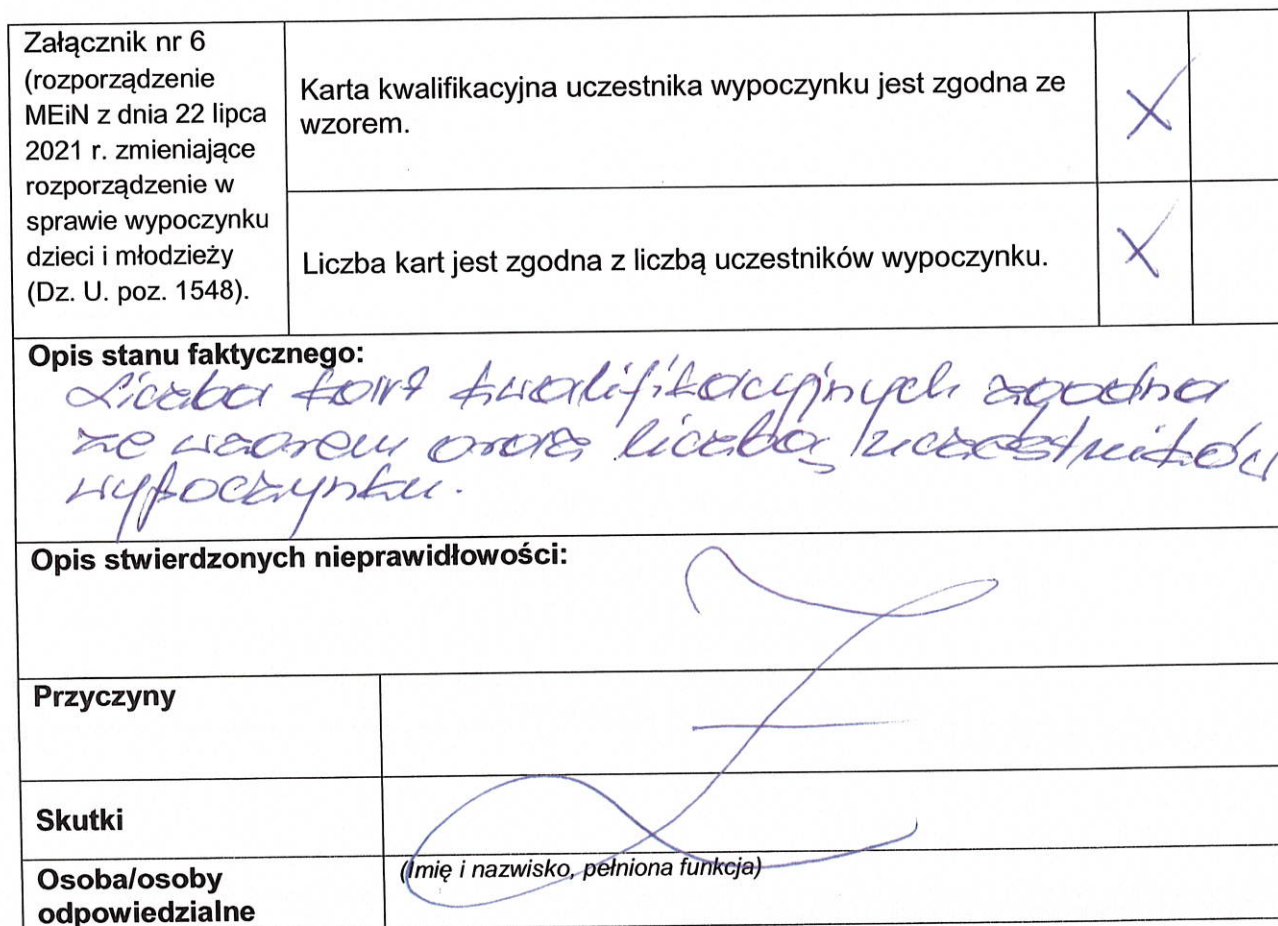 Załącznik nr 6
(rozporządzenie
MEiN z dnia 22 lipca
2021 r. zmieniające
rozporządzenie w
sprawie wypoczynku
dzieci i młodzieży
(Dz. U. poz. 1548).
Karta kwalifikacyjna uczestnika wypoczynku jest zgodna ze
wzorem.
X
Liczba kart jest zgodna z liczbą uczestników wypoczynku.
X
Opis stanu faktycznego:
Liczba kart kwalifikacyjnych zgodna
ze wzorem oraz liczbą uczestników
wypoczynku.
Opis stwierdzonych nieprawidłowości:
Przyczyny
Skutki
Osoba/osoby
odpowiedzialne
(Imię i nazwisko, pełniona funkcja)